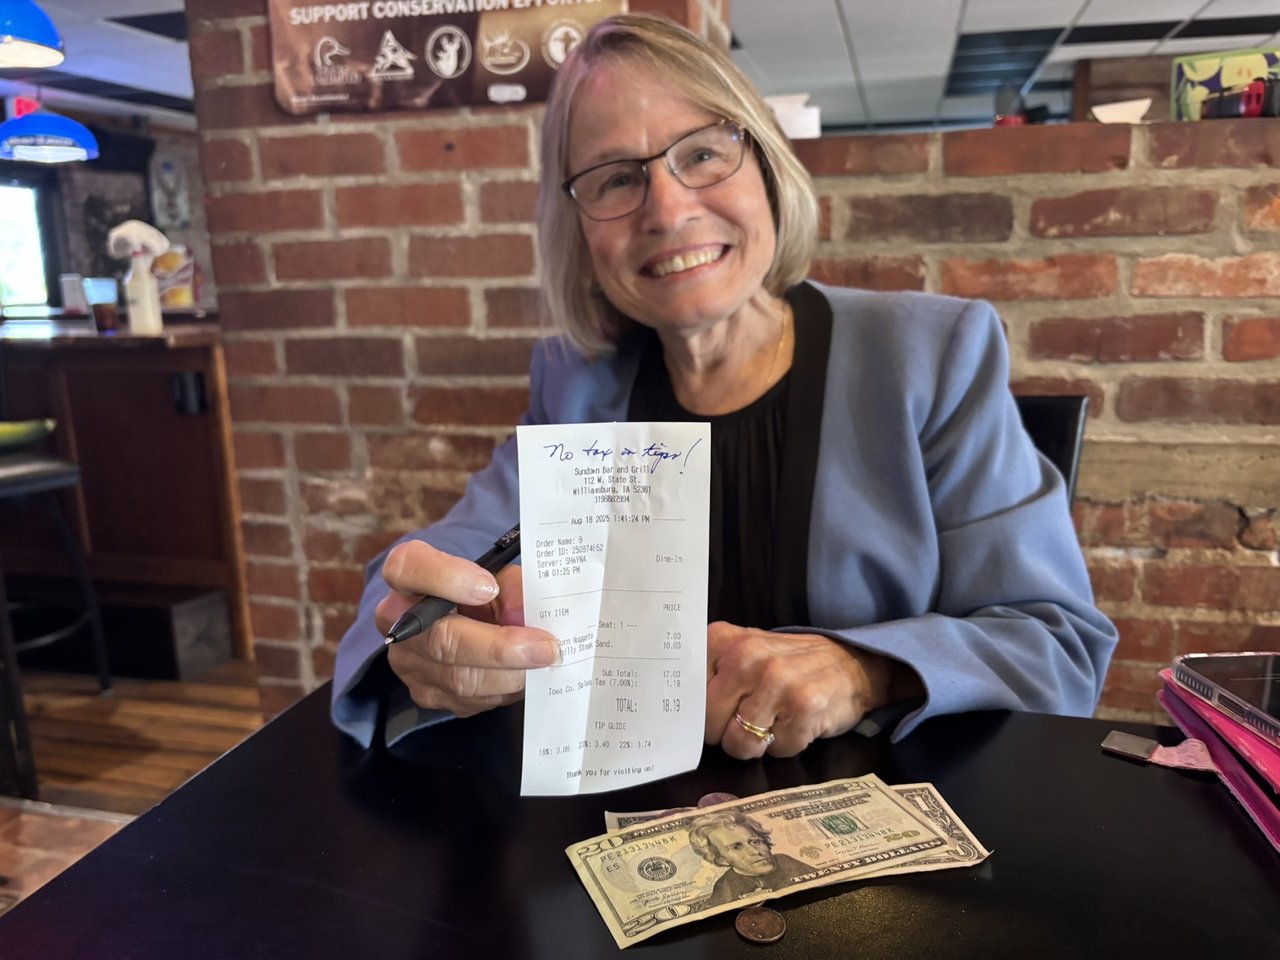 SUPPORT CONSERVATION EFFORTS
No tax on tips!
Sundown Bar and Grill
112 W. State St.
Williamsburg, IA 52361
3196682994
Aug 18 2025 1:41:24 PM
Order Name: 9
Order ID: 250874652
Server: SHAYNA
Dine-In
In# 01:25 PM
QTY ITEM PRICE
Seat: 1
Corn Nuggets 7.00
Philly Steak Sand. 10.00
Sub Total: 17.00
Iowa Co. Sales Tax (7.00%): 1.19
TOTAL: 18.19
TIP GUIDE
18%: 3.06 20%: 3.40 22%: 3.74
Thank you for visiting us!
20
PE21313448K
20
PE21313448K
TWENTY DOLLARS
20
1